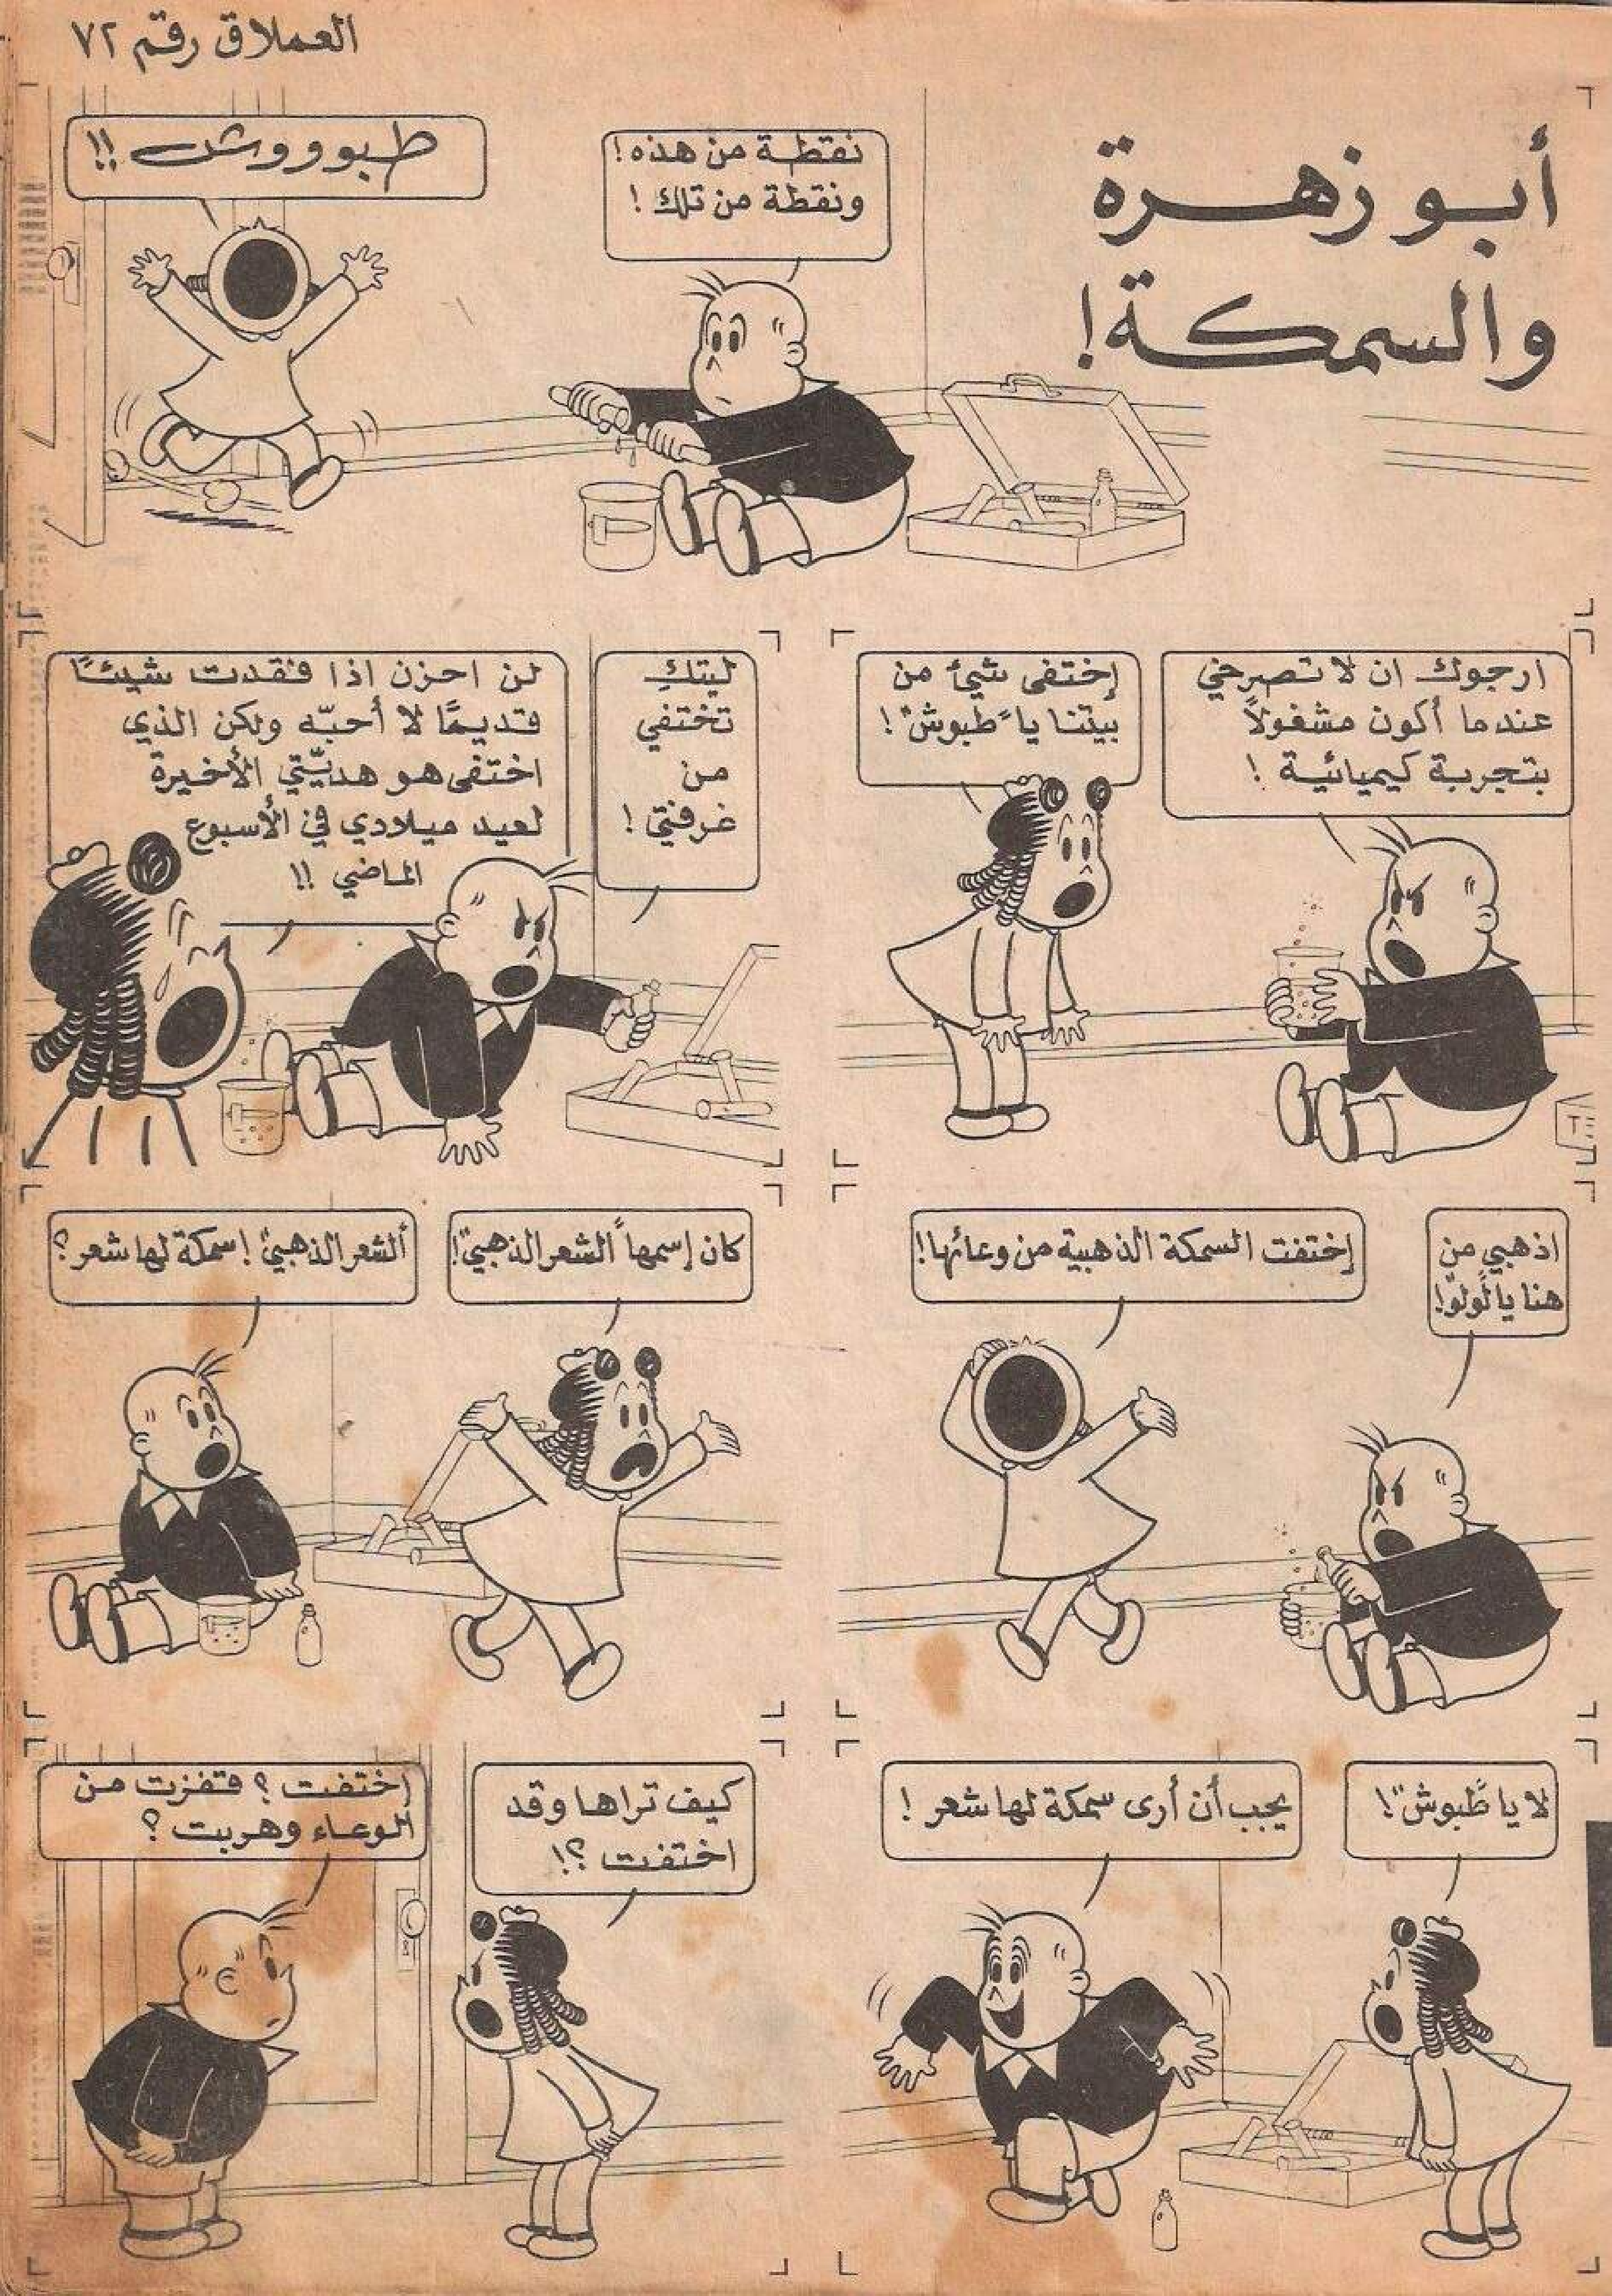 العملاق رقم ٧٢
أبو زهرة
والسمكة!
نقطة من هذه!
ونقطة من تلك!
طبوووش!!
ارجوك ان لا تصرخي
عندما أكون مشغولاً
بتجربة كيميائية!
إختفى شيئ من
بيتنا يا "طبوش"!
ليتكِ
تختفي
من
غرفتي!
لن احزن اذا فقدت شيئًا
قديمًا لا أحبّه ولكن الذي
اختفى هو هديّتي الأخيرة
لعيد ميلادي في الأسبوع
الماضي!!
اذهبي من
هنا يا "لولو"!
إختفت السمكة الذهبية من وعائها!
كان إسمها "الشعر الذهبي"!
"ألشعر الذهبي"! سمكة لها شعر؟
لا يا "طبوش"!
يجب أن أرى سمكة لها شعر!
كيف تراها وقد
اختفت؟!
إختفت؟ قفزت من
الوعاء وهربت؟